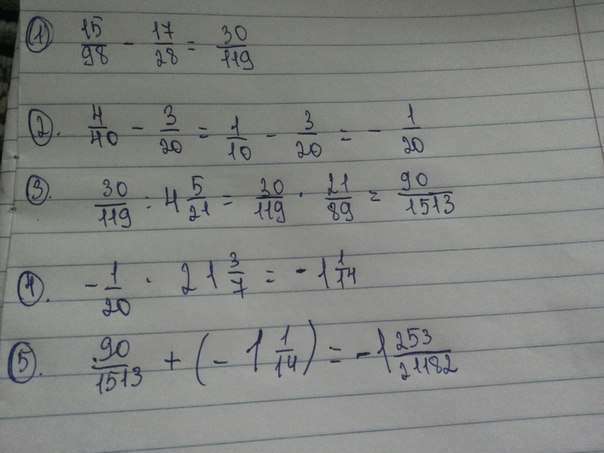 ① 15/98 - 17/28 = 30/119
②. 4/40 - 3/20 = 1/10 - 3/20 = - 1/20
③. 30/119 : 4 5/21 = 30/119 · 21/89 = 90/1513
④. - 1/20 · 21 3/7 = - 1 1/14
⑤. 90/1513 + (- 1 1/14) = - 1 253/21182